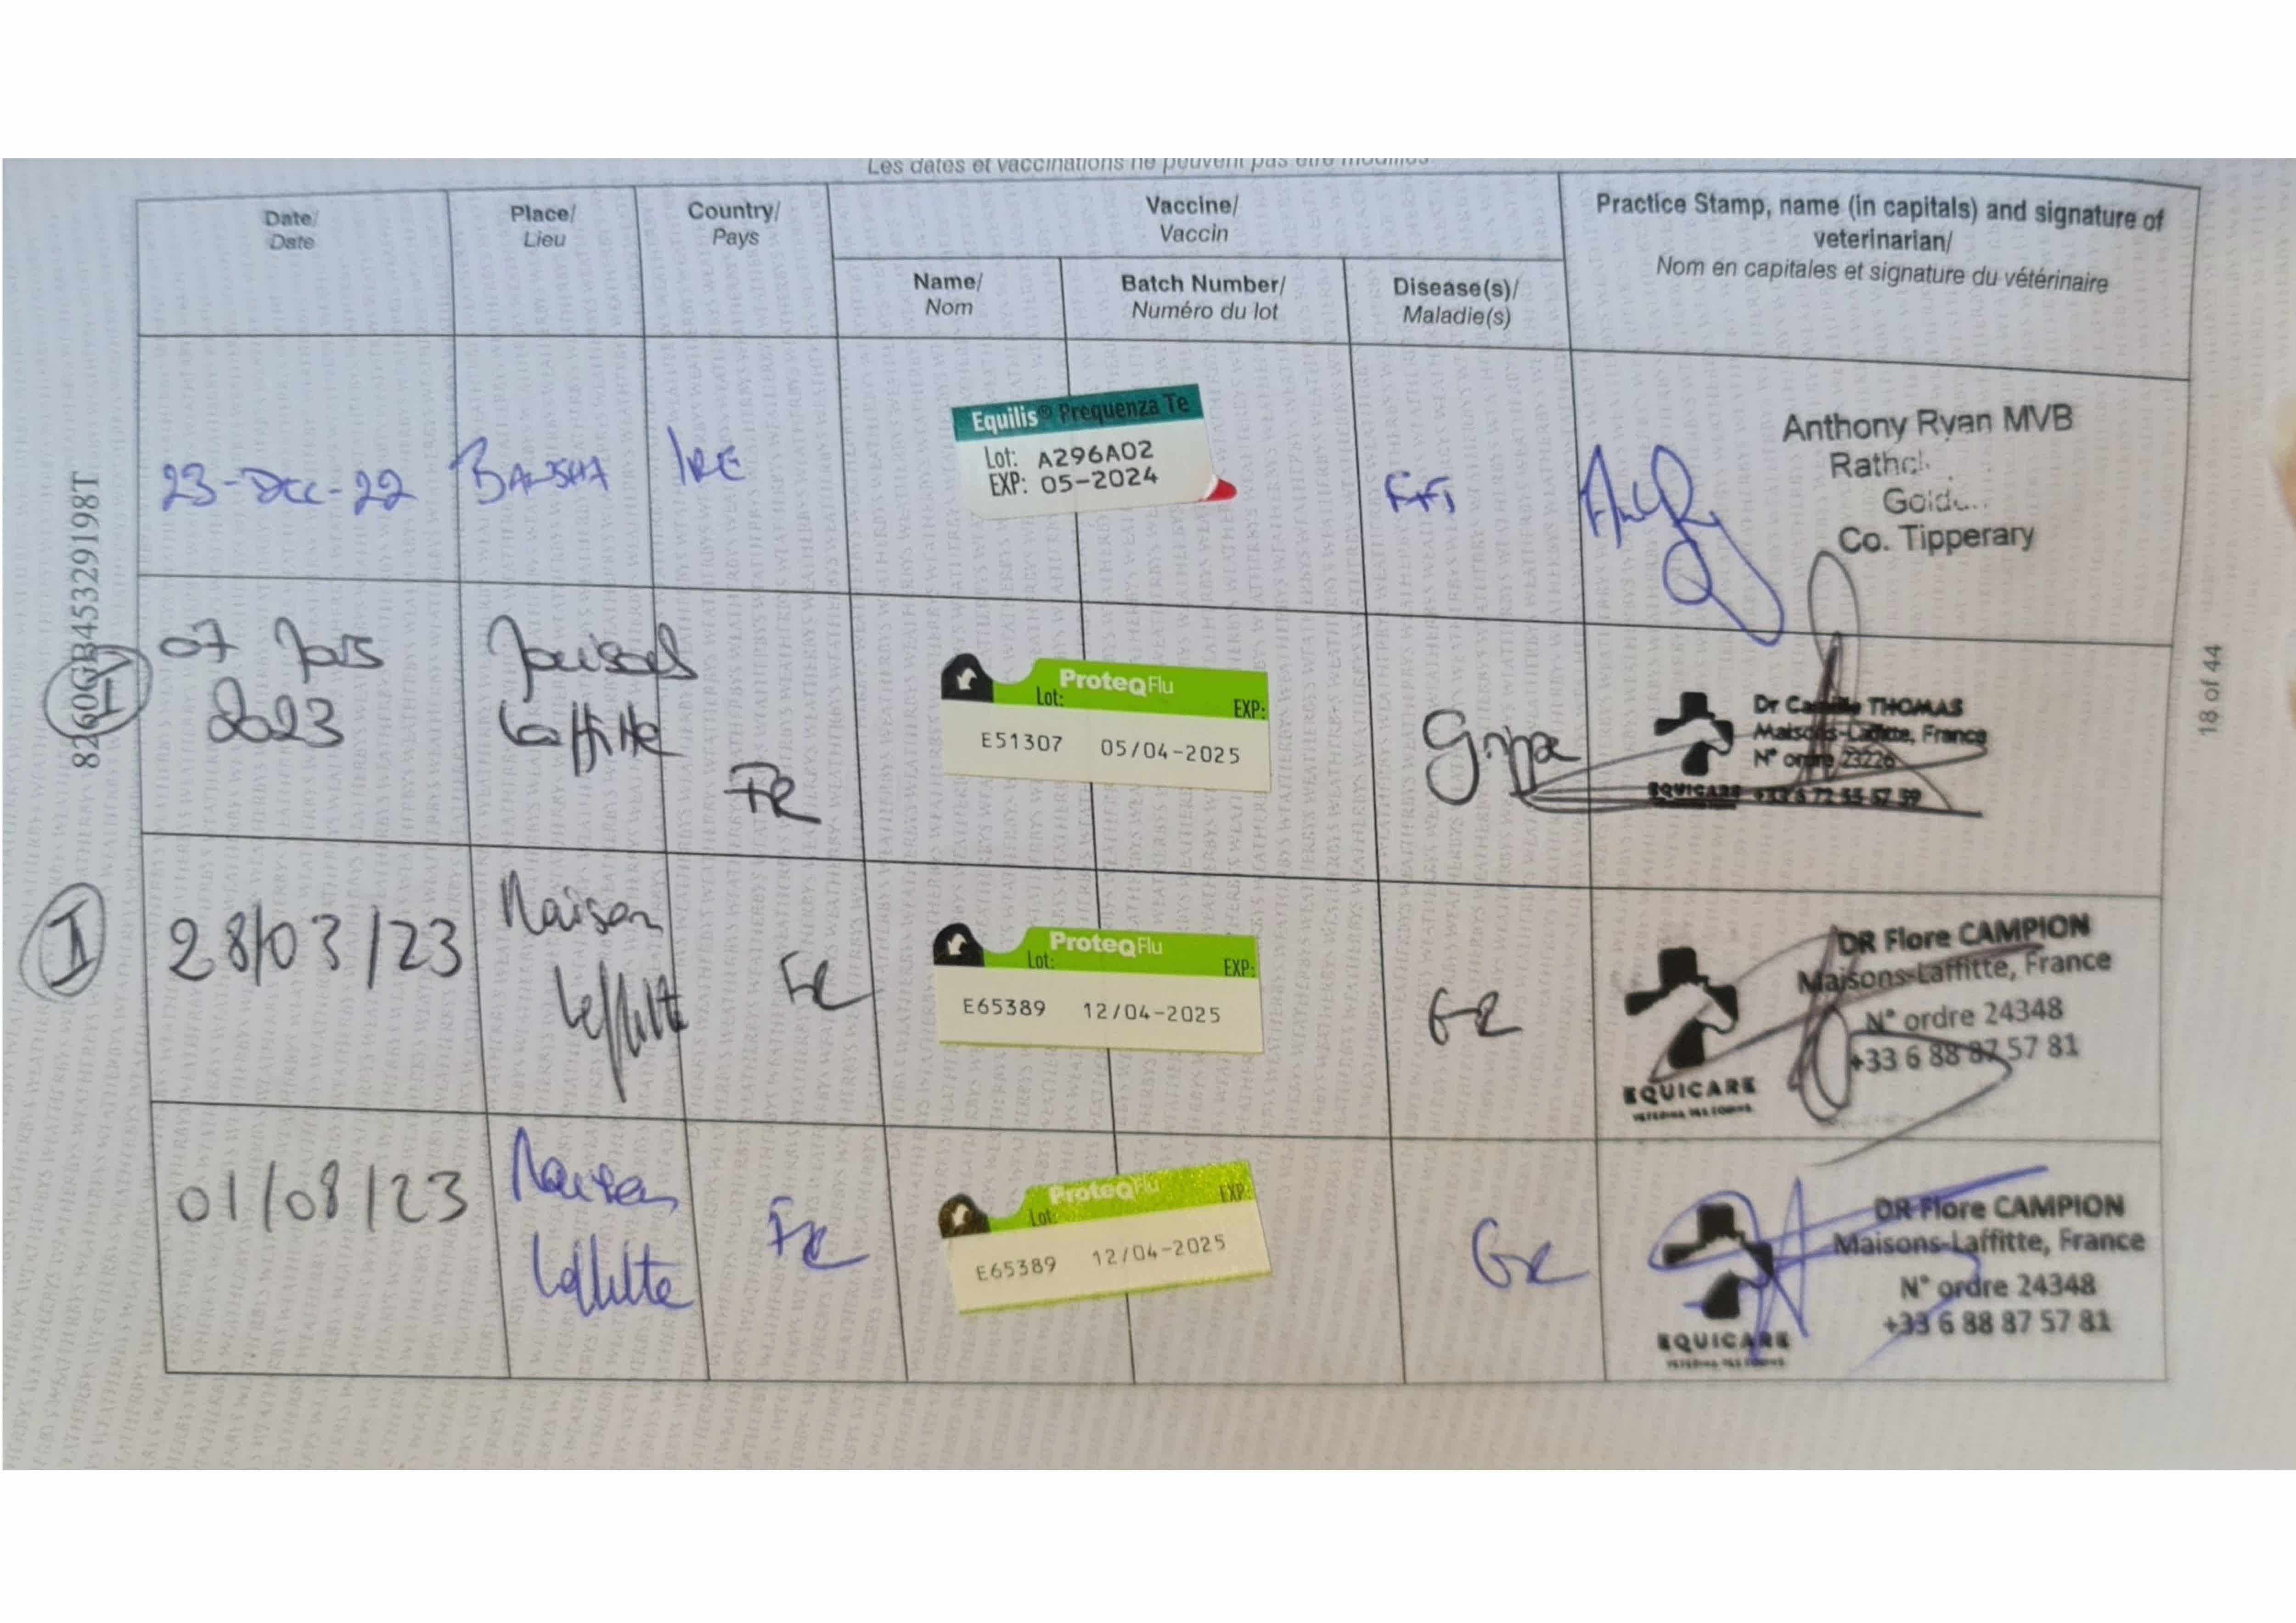 Les dates et vaccinations ne peuvent pas être modifiés
Date/
Date
Place/
Lieu
Country/
Pays
Vaccine/
Vaccin
Name/
Nom
Batch Number/
Numéro du lot
Disease(s)/
Maladie(s)
Practice Stamp, name (in capitals) and signature of
veterinarian/
Nom en capitales et signature du vétérinaire
23-Dec-22
BANSHA
IRE
Equilis® Prequenza Te
Lot: A296A02
EXP: 05-2024
Anthony Ryan MVB
Co. Tipperary
07
2023
Laffitte
FR
ProteqFlu
Lot: EXP:
E51307 05/04-2025
Grippe
Dr Camille THOMAS
Maisons-Laffitte, France
N° ordre 23226
EQUICARE +33 6 72 55 57 59
II
28/03/23
Maison
Laffitte
FR
ProteqFlu
Lot: EXP:
E65389 12/04-2025
GR
DR Flore CAMPION
Maisons-Laffitte, France
N° ordre 24348
+33 6 88 87 57 81
EQUICARE
01/08/23
Maison
Laffitte
FR
ProteqFlu
Lot: EXP:
E65389 12/04-2025
GR
DR Flore CAMPION
Maisons-Laffitte, France
N° ordre 24348
+33 6 88 87 57 81
EQUICARE
8260GB45329198T
18 of 44